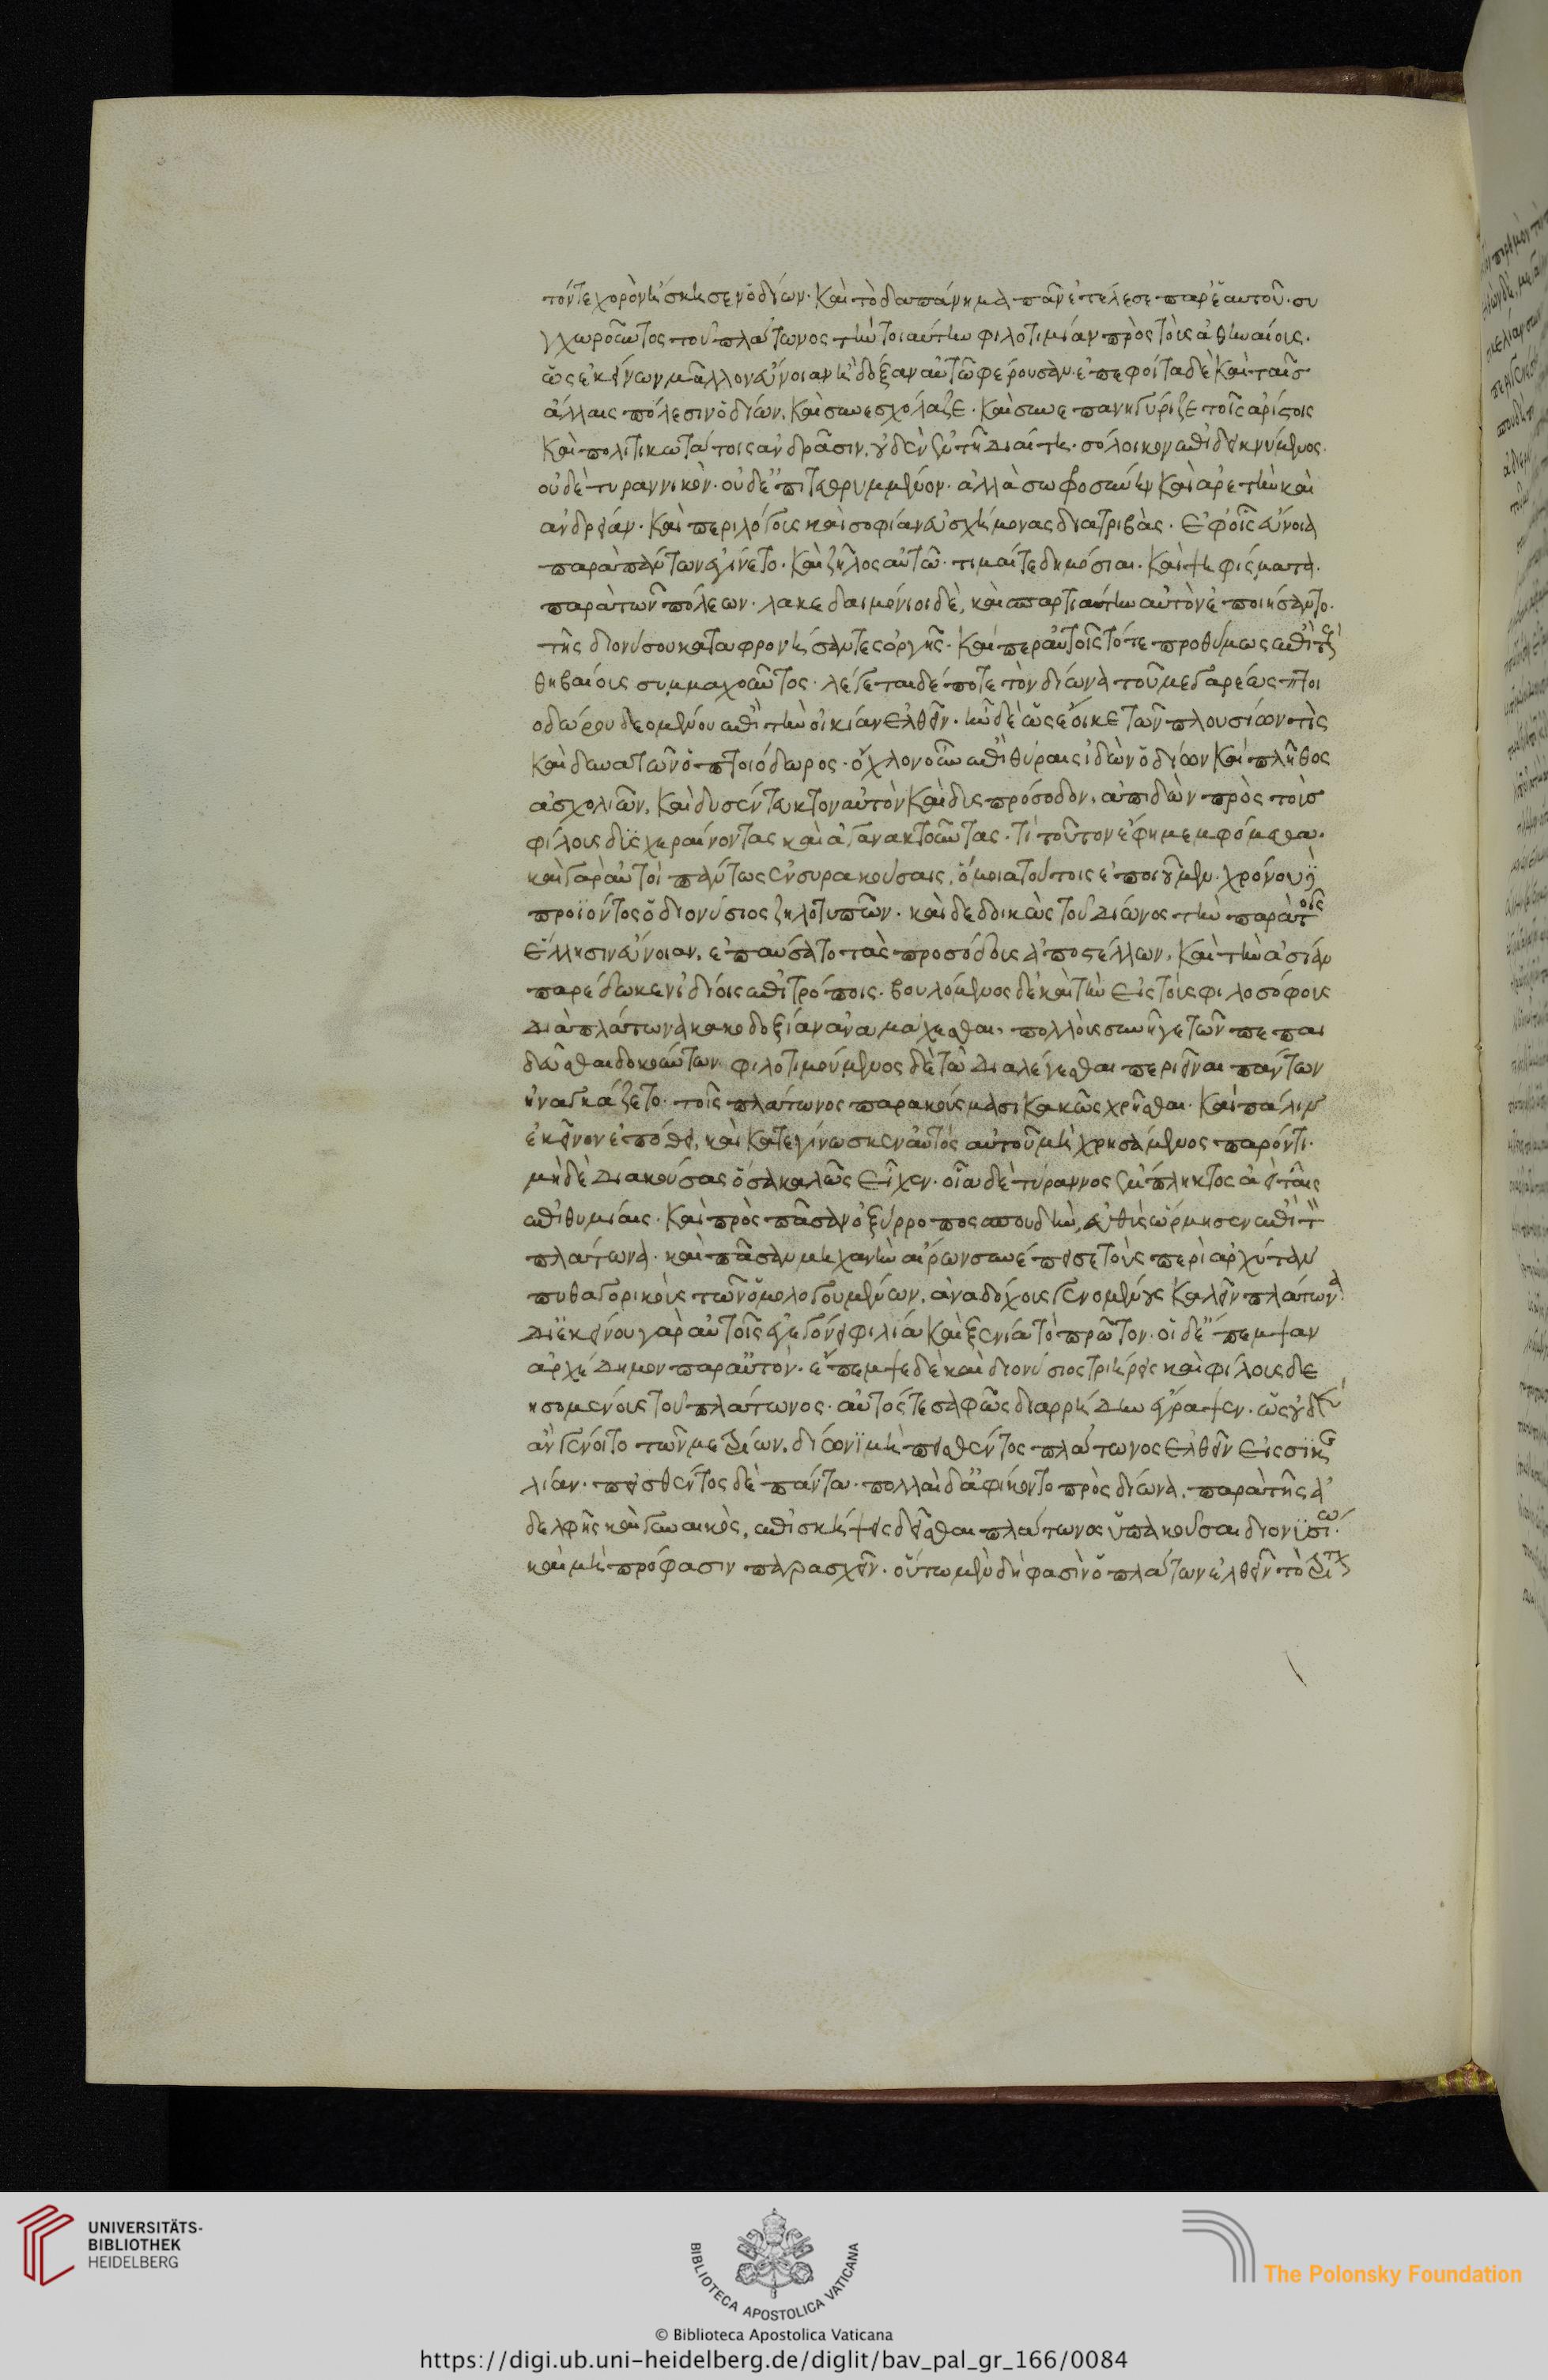 τόν τε χορὸν ἤσκησεν ὁ δίων· καὶ τὸ δαπάνημα πᾶν ἐτέλεσε παρ' ἑαυτοῦ· συ
γχωροῦντος τοῦ πλάτωνος τὴν τοιαύτην φιλοτιμίαν πρὸς τοὺς ἀθηναίους.
ὡς ἐκείνω μᾶλλον εὔνοιαν ἢ δόξαν αὐτῶ φέρουσαν· ἐπεφοίτα δὲ καὶ ταῖς
ἄλλαις πόλεσιν ὁ δίων, καὶ συνεσχόλαζε· καὶ συνεπανηγύριζε τοῖς ἀρίστοις
καὶ πολιτικωτάτοις ἀνδράσιν, οὐδὲν ἐν τῆ διαίτη· σόλοικον ἐπιδεικνύμενος.
οὐδὲ τυραννικὸν· οὐδὲ ἐπιτεθρυμμένον· ἀλλὰ σωφροσύνην καὶ ἀρετὴν καὶ
ἀνδρείαν· καὶ περὶ λόγους καὶ σοφίαν εὐσχήμονας διατριβὰς· ἐφ' οἷς εὔνοια
παρὰ πάντων ἐγίνετο· καὶ ζῆλος αὐτῶ· τιμαί τε δημόσιαι· καὶ ψηφίσματα.
παρὰ τῶν πόλεων· λακεδαιμόνιοι δὲ, καὶ σπαρτιάτην αὐτὸν ἐποιήσαντο.
τῆς διονύσου καταφρονήσαντες ὀργῆς· καίπερ αὐτοῖς τότε προθύμως ἐπὶ τοὺς
θηβαίους συμμαχοῦντος· λέγεται δέ ποτε τὸν δίωνα τοῦ μεγαρέως πτοι
οδώρου δεομένου ἐπὶ τὴν οἰκίαν ἐλθεῖν· ἦν δὲ ὡς ἔοικε τῶν πλουσίων τὶς
καὶ δυνατῶν ὁ πτοιόδωρος· ὄχλον οὖν ἐπὶ θύραις ἰδὼν ὁ δίων καὶ πλῆθος
ἀσχολιῶν, καὶ δυσέντευκτον αὐτὸν καὶ δυσπρόσοδον, ἀπιδὼν πρὸς τοὺς
φίλους δυσχεραίνοντας καὶ ἀγανακτοῦντας· τί τοῦτον ἔφη μεμφόμεθα·
καὶ γὰρ αὐτοὶ πάντως ἐν συρακούσαις, ὅμοια τούτοις ἐποιοῦμεν· χρόνου δὲ
προϊόντος ὁ διονύσιος ζηλοτυπῶν· καὶ δεδοικὼς τοῦ δίωνος τὴν παρὰ τοῖς
ἕλλησιν εὔνοιαν, ἐπαύσατο τὰς προσόδους ἀποστέλλων, καὶ τὴν οὐσίαν
παρέδωκεν ἰδίοις ἐπιτρόποις· βουλόμενος δὲ καὶ τὴν εἰς τοὺς φιλοσόφους
διὰ πλάτωνα κακοδοξίαν ἀναμάχεσθαι, πολλοὺς συνῆγε τῶν πεπαι
δεῦσθαι δοκούντων· φιλοτιμούμενος δὲ τῶ διαλέγεσθαι περιεῖναι πάντων
ἠναγκάζετο· τοῖς πλάτωνος παρακούσμασι κακῶς χρῆσθαι· καὶ πάλιν
ἐκεῖνον ἐπόθει, καὶ κατεγίνωσκεν αὐτὸς αὐτοῦ μὴ χρησάμενος παρόντι·
μηδὲ διακούσας ὅσα καλῶς εἶχεν· οἷα δὲ τύραννος ἔμπληκτος ἀεὶ ταῖς
ἐπιθυμίαις· καὶ πρὸς πᾶσαν ὀξύρροπος σπουδὴν, εὐθὺς ὥρμησεν ἐπὶ τὸν
πλάτωνα· καὶ πᾶσαν μηχανὴν αἴρων συνέπεισε τοὺς περὶ ἀρχύταν
πυθαγορικοὺς τῶν ὁμολογουμένων, ἀναδόχους γενομένους καλεῖν πλάτωνα·
δι' ἐκείνου γὰρ αὐτοῖς ἐγεγόνει φιλία καὶ ξενία τὸ πρῶτον· οἱ δ' ἔπεμψαν
ἀρχέδημον παρ' αὐτὸν· ἔπεμψε δὲ καὶ διονύσιος τριήρεις καὶ φίλους δε
ησομένους τοῦ πλάτωνος· αὐτός τε σαφῶς διαρρήδην ἔγραψεν· ὡς οὐδὲν
ἂν γένοιτο τῶν μετρίων, δίωνι μὴ πεισθέντος πλάτωνος ἐλθεῖν εἰς σικε
λίαν· πεισθέντος δὲ πάντα· πολλαὶ δ' ἀφίκοντο πρὸς δίωνα, παρὰ τῆς ἀ
δελφῆς καὶ γυναικὸς, ἐπισκήψεις δεῖσθαι πλάτωνος ὑπακοῦσαι διονυσίω·
καὶ μὴ πρόφασιν παρασχεῖν· οὕτω μὲν δή φασὶν ὁ πλάτων ἐλθεῖν τὸ τρίτον
UNIVERSITÄTS-
BIBLIOTHEK
HEIDELBERG
BIBLIOTECA APOSTOLICA VATICANA
The Polonsky Foundation
© Biblioteca Apostolica Vaticana
https://digi.ub.uni-heidelberg.de/diglit/bav_pal_gr_166/0084